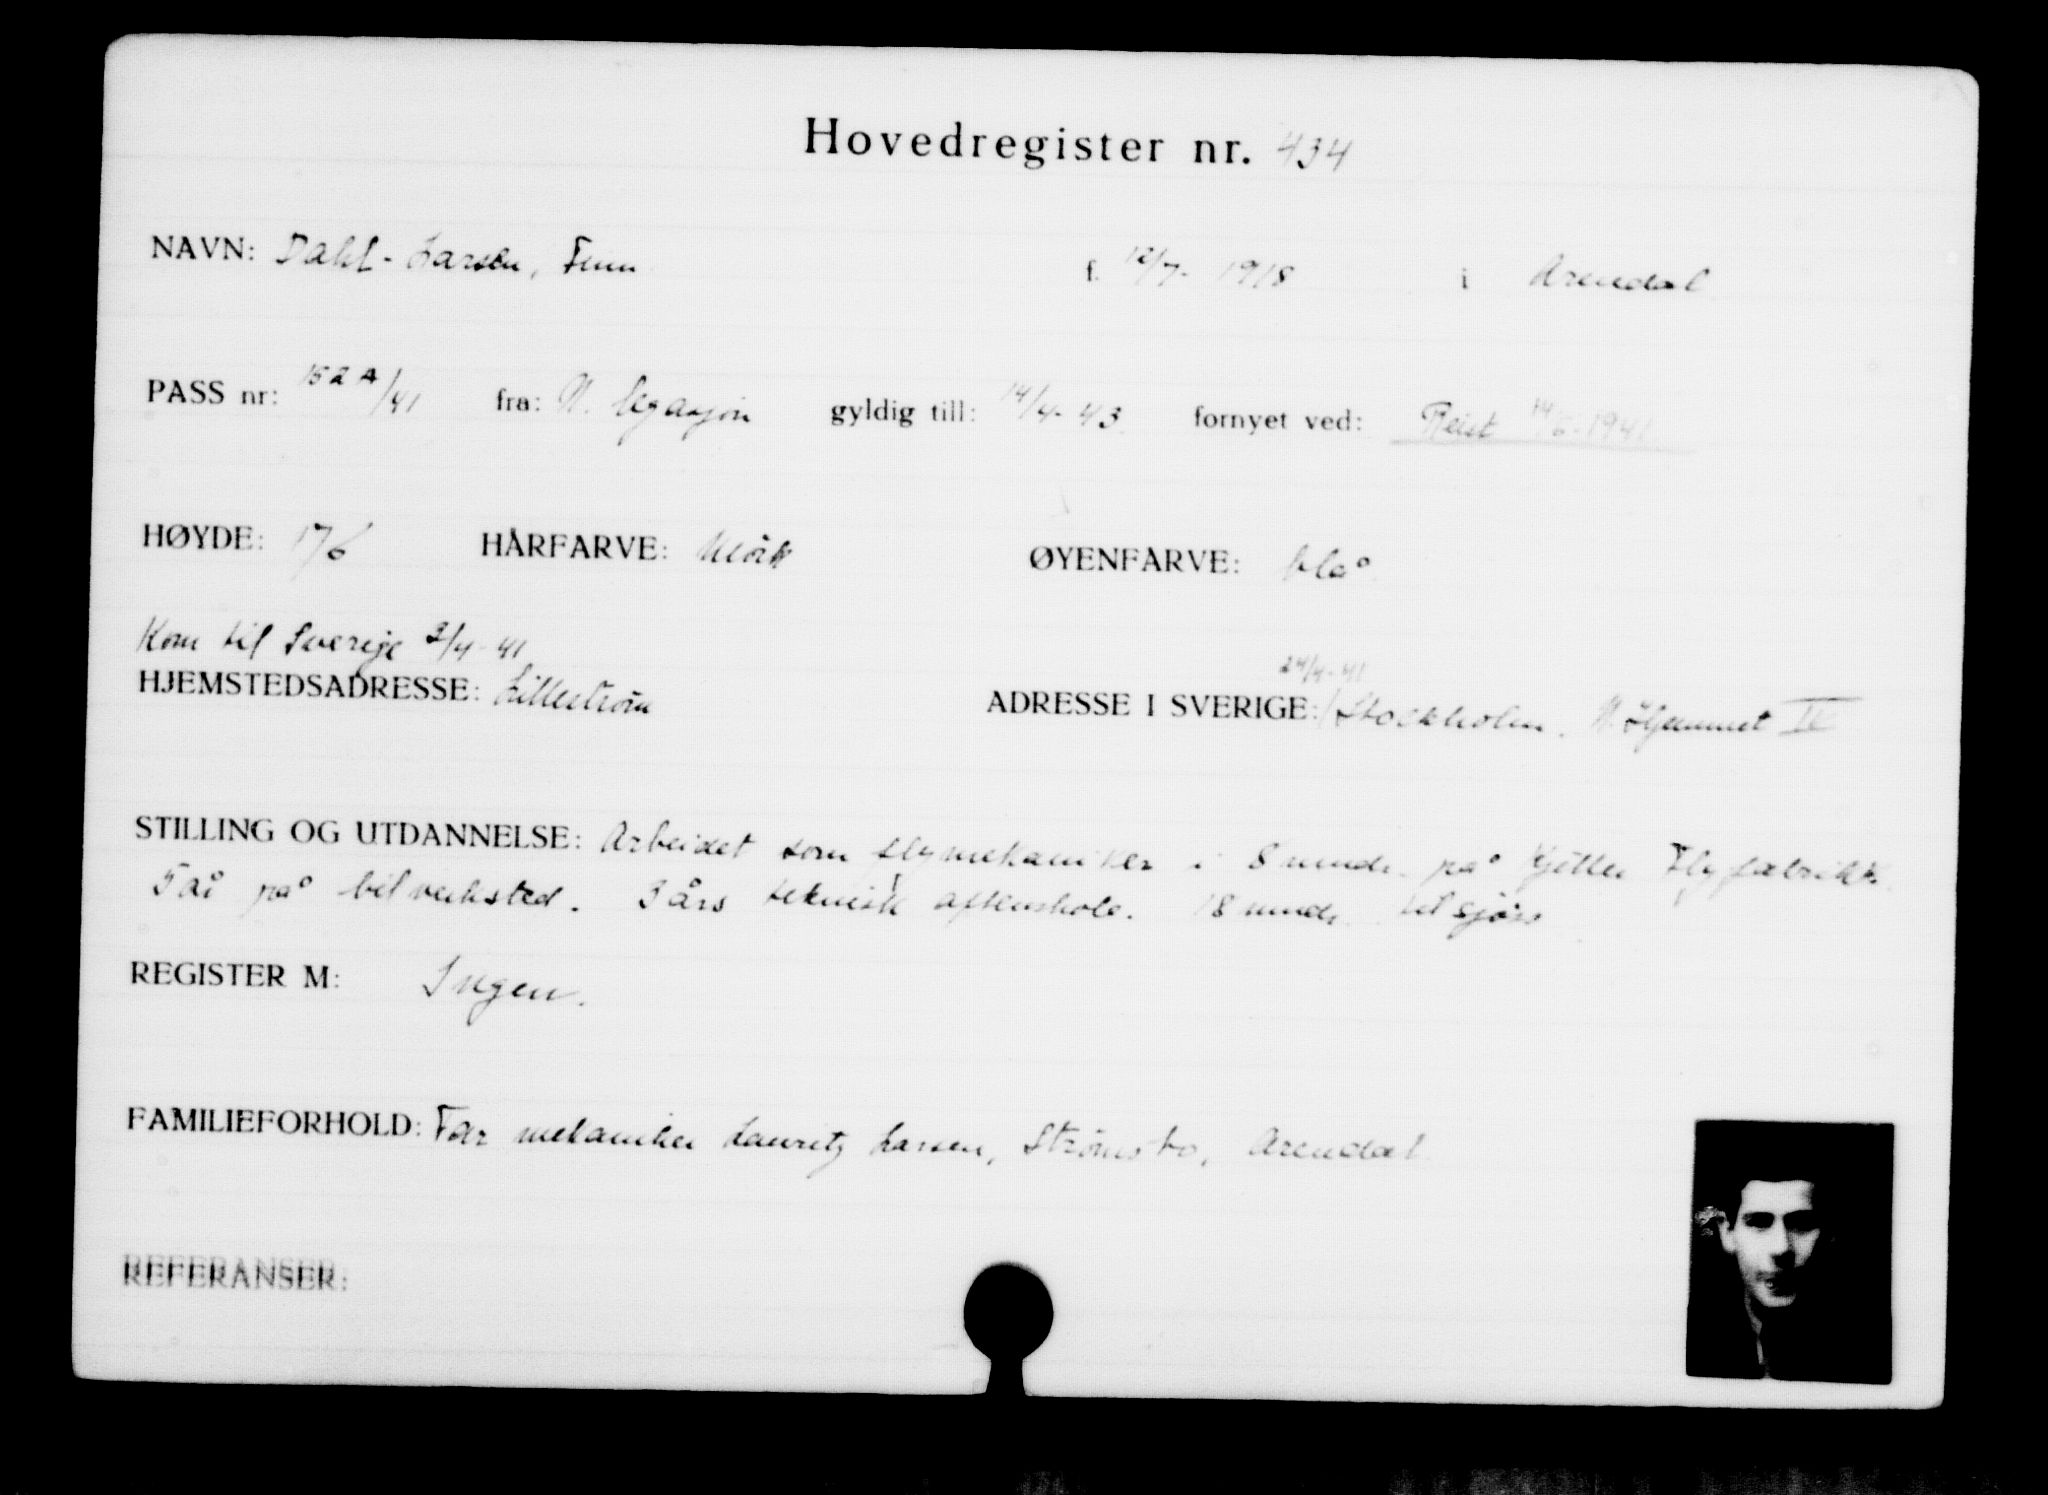 Hovedregister nr. 434
NAVN: Dahl-Larsen, Finn f. 12/7- 1918 i Arendal
PASS nr: 152A/41 fra: N. legasjon gyldig till: 14/4-43 fornyet ved: Reist 14/6-1941
HØYDE: 176 HÅRFARVE: Mörk ØYENFARVE: blå
Kom til Sverige 2/4-41
24/4-41
HJEMSTEDSADRESSE: Lilleström ADRESSE I SVERIGE: Stockholm. N. Hjemmet
STILLING OG UTDANNELSE: Arbeidet som flymekaniker i 8 mndr. på Kjeller Flyfabrikk.
5 år på bilverksted. 3 års teknisk aftenskole. 18 mndr. til sjøs
REGISTER M: Ingen.
FAMILIEFORHOLD: Far mekaniker Lauritz Larsen, Strømsbo, Arendal
REFERANSER: